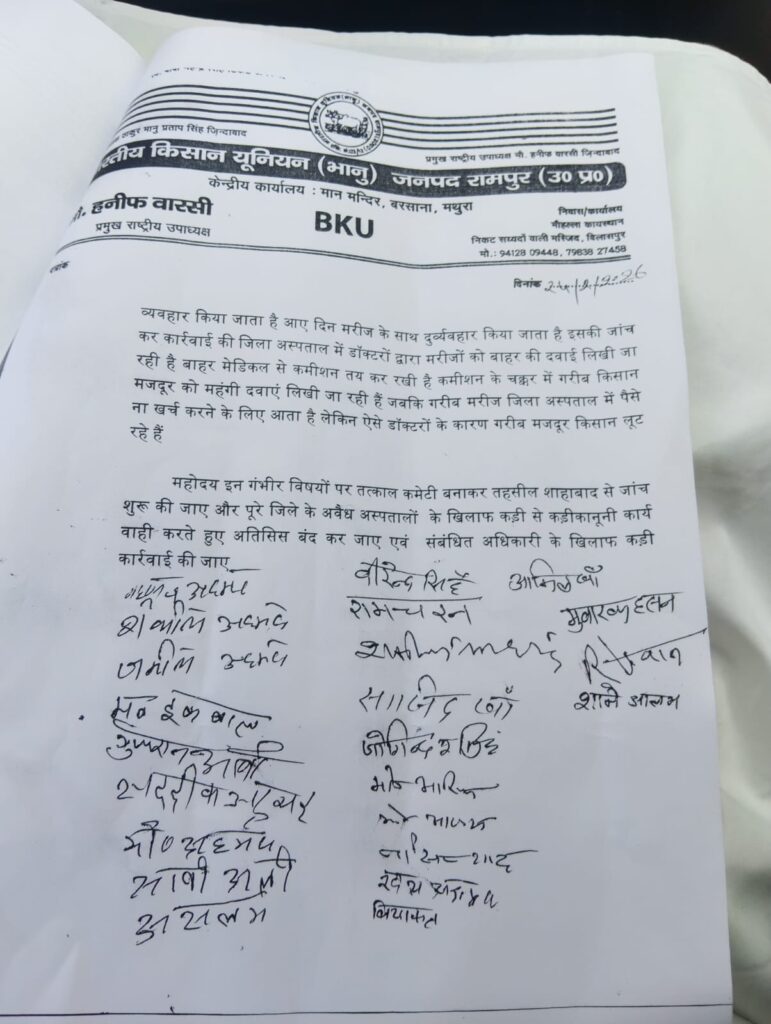 ठाकुर भानु प्रताप सिंह ज़िन्दाबाद
प्रमुख राष्ट्रीय उपाध्यक्ष चौ. हनीफ वारसी ज़िन्दाबाद
तीय किसान यूनियन (भानु) जनपद रामपुर (उ० प्र०)
केन्द्रीय कार्यालय : मान मन्दिर, बरसाना, मथुरा
ौ. हनीफ वारसी
प्रमुख राष्ट्रीय उपाध्यक्ष
BKU
निवास/कार्यालय
मौहल्ला कायस्थान
निकट सय्यदों वाली मस्जिद, बिलासपुर
मो.: 94128 09448, 79838 27458
दिनांक
व्यवहार किया जाता है आए दिन मरीज के साथ दुर्व्यवहार किया जाता है इसकी जांच
कर कार्रवाई की जिला अस्पताल में डॉक्टरों द्वारा मरीजों को बाहर की दवाई लिखी जा
रही है बाहर मेडिकल से कमीशन तय कर रखी है कमीशन के चक्कर में गरीब किसान
मजदूर को महंगी दवाएं लिखी जा रही हैं जबकि गरीब मरीज जिला अस्पताल में पैसे
ना खर्च करने के लिए आता है लेकिन ऐसे डॉक्टरों के कारण गरीब मजदूर किसान लूट
रहे हैं
महोदय इन गंभीर विषयों पर तत्काल कमेटी बनाकर तहसील शाहाबाद से जांच
शुरू की जाए और पूरे जिले के अवैध अस्पतालों के खिलाफ कड़ी से कड़ीकानूनी कार्य
वाही करते हुए अतिसिस बंद कर जाए एवं संबंधित अधिकारी के खिलाफ कड़ी
कार्रवाई की जाए
वीरेन्द्र सिंह
रामचरन
शकील अहमद
जमील अहमद
रिजवान
साजिद खाँ
शाने आलम
जोगिन्दर सिंह
अली
असलम
लियाकत